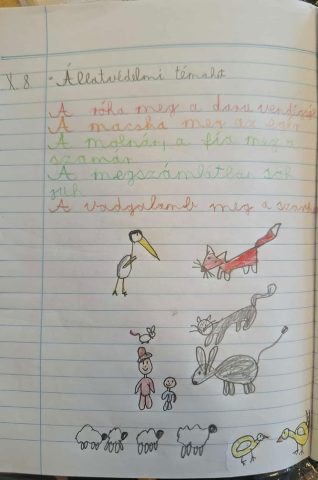 X. 8. Állatvédelmi témahét
A róka meg a daru vendégsége
A macska meg az egér
A molnár, a fia meg a
szamár
A megszámlátlan sok
juh
A vadgalamb meg a szarka